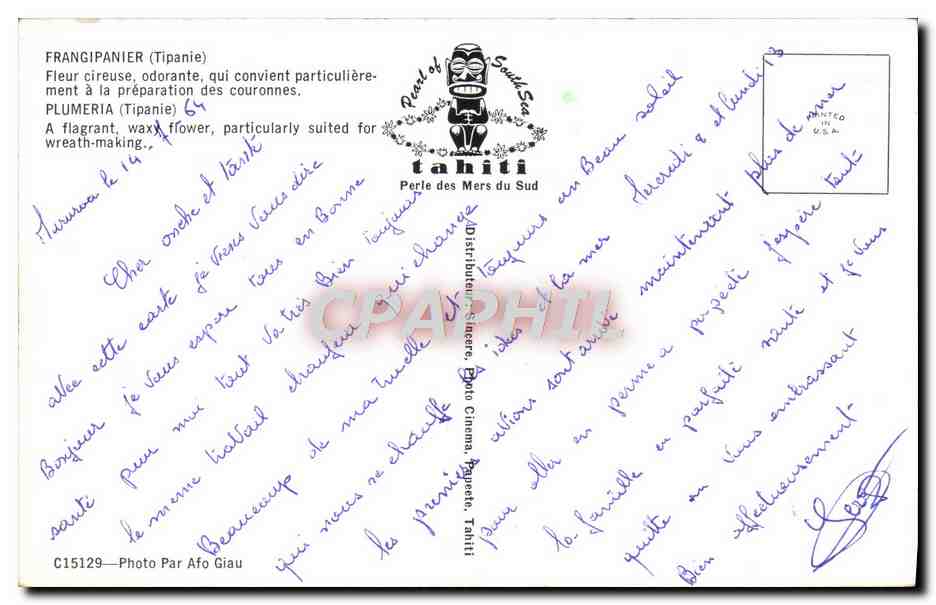 FRANGIPANIER (Tipanie)
Fleur cireuse, odorante, qui convient particulière-
ment à la préparation des couronnes.
PLUMERIA (Tipanie)
A flagrant, waxy flower, particularly suited for
wreath-making.
Pearl of South Sea
tahiti
Perle des Mers du Sud
PRINTED
IN
U.S.A.
Mururoa le 14 7 64
Cher et
avec cette carte je viens vous dire
Bonjour je vous espère tous en Bonne
santé pour moi tout va très Bien toujours
le même travail qui change
Beaucoup de ma truelle et toujours un Beau soleil
qui nous se chauffe les idées et la mer Mercredi 8 et lundi 13
les premiers avions sont arrivé maintenant plus de mer
pour aller en perme a papeete j'espère tout
la famille en parfaite santé et je vous
quitte en vous embrassant
Bien affectueusement
Distributeur: Sincere, Photo Cinema, Papeete, Tahiti
C15129—Photo Par Afo Giau
CPAPHIL